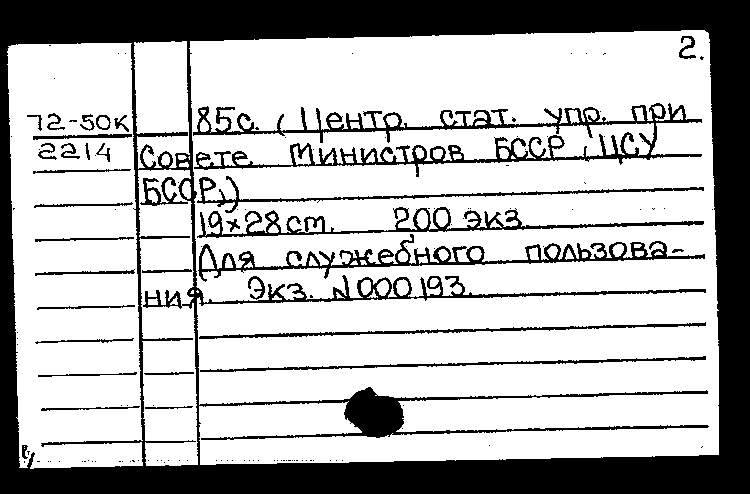 2.
72-50к 85с. (Центр. стат. упр. при
2214 Совете Министров БССР (ЦСУ
БССР))
19×28 cm. 200 экз.
Для служебного пользова-
ния. Экз. N000193.